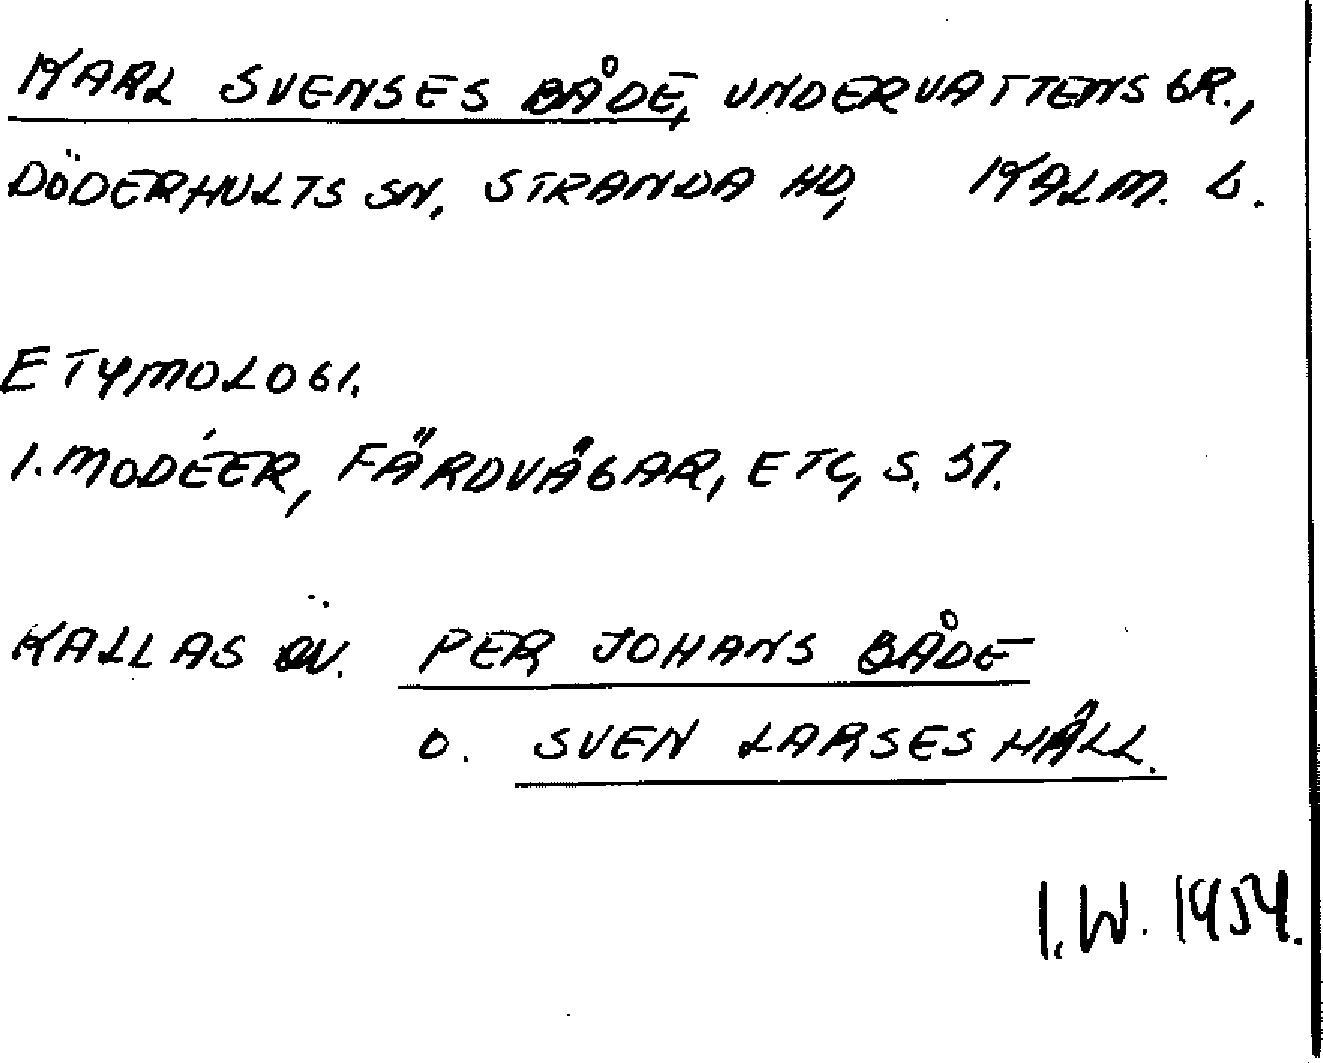 KARL SVENSES BÅDE, UNDERVATTENSGR.,
DÖDERHULTS SN, STRANDA HD, KALM. L.
ETYMOLOGI.
I. MODÉER, FÄRDVÄGAR, ETC, S. 37.
KALLAS ÄV. PER JOHANS BÅDE
O. SVEN LARSES HÄLL.
I.W. 1954.